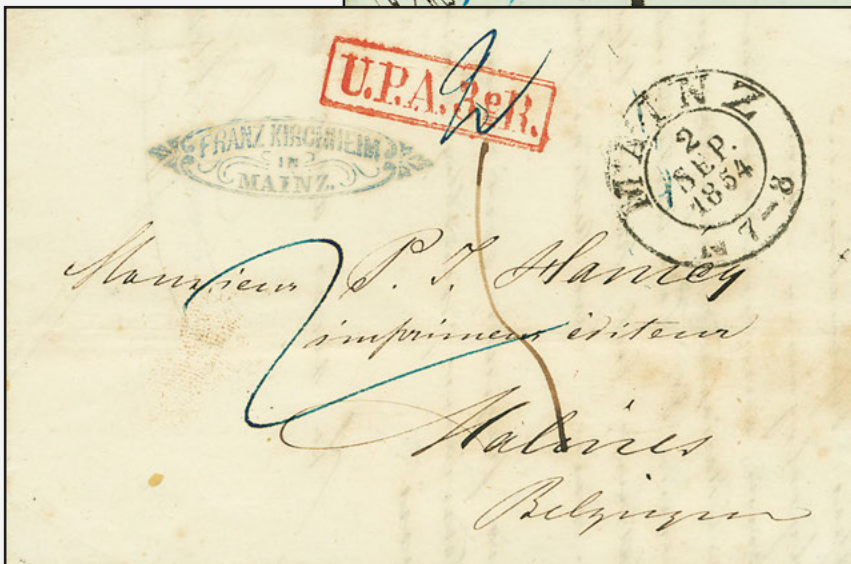 U.P.A. 3e R.
FRANZ KIRCHHEIM
IN
MAINZ.
MAINZ
2
SEP.
1854
N 7-8
2
Monsieur P. J.
imprimeur éditeur
Malines
Belgique